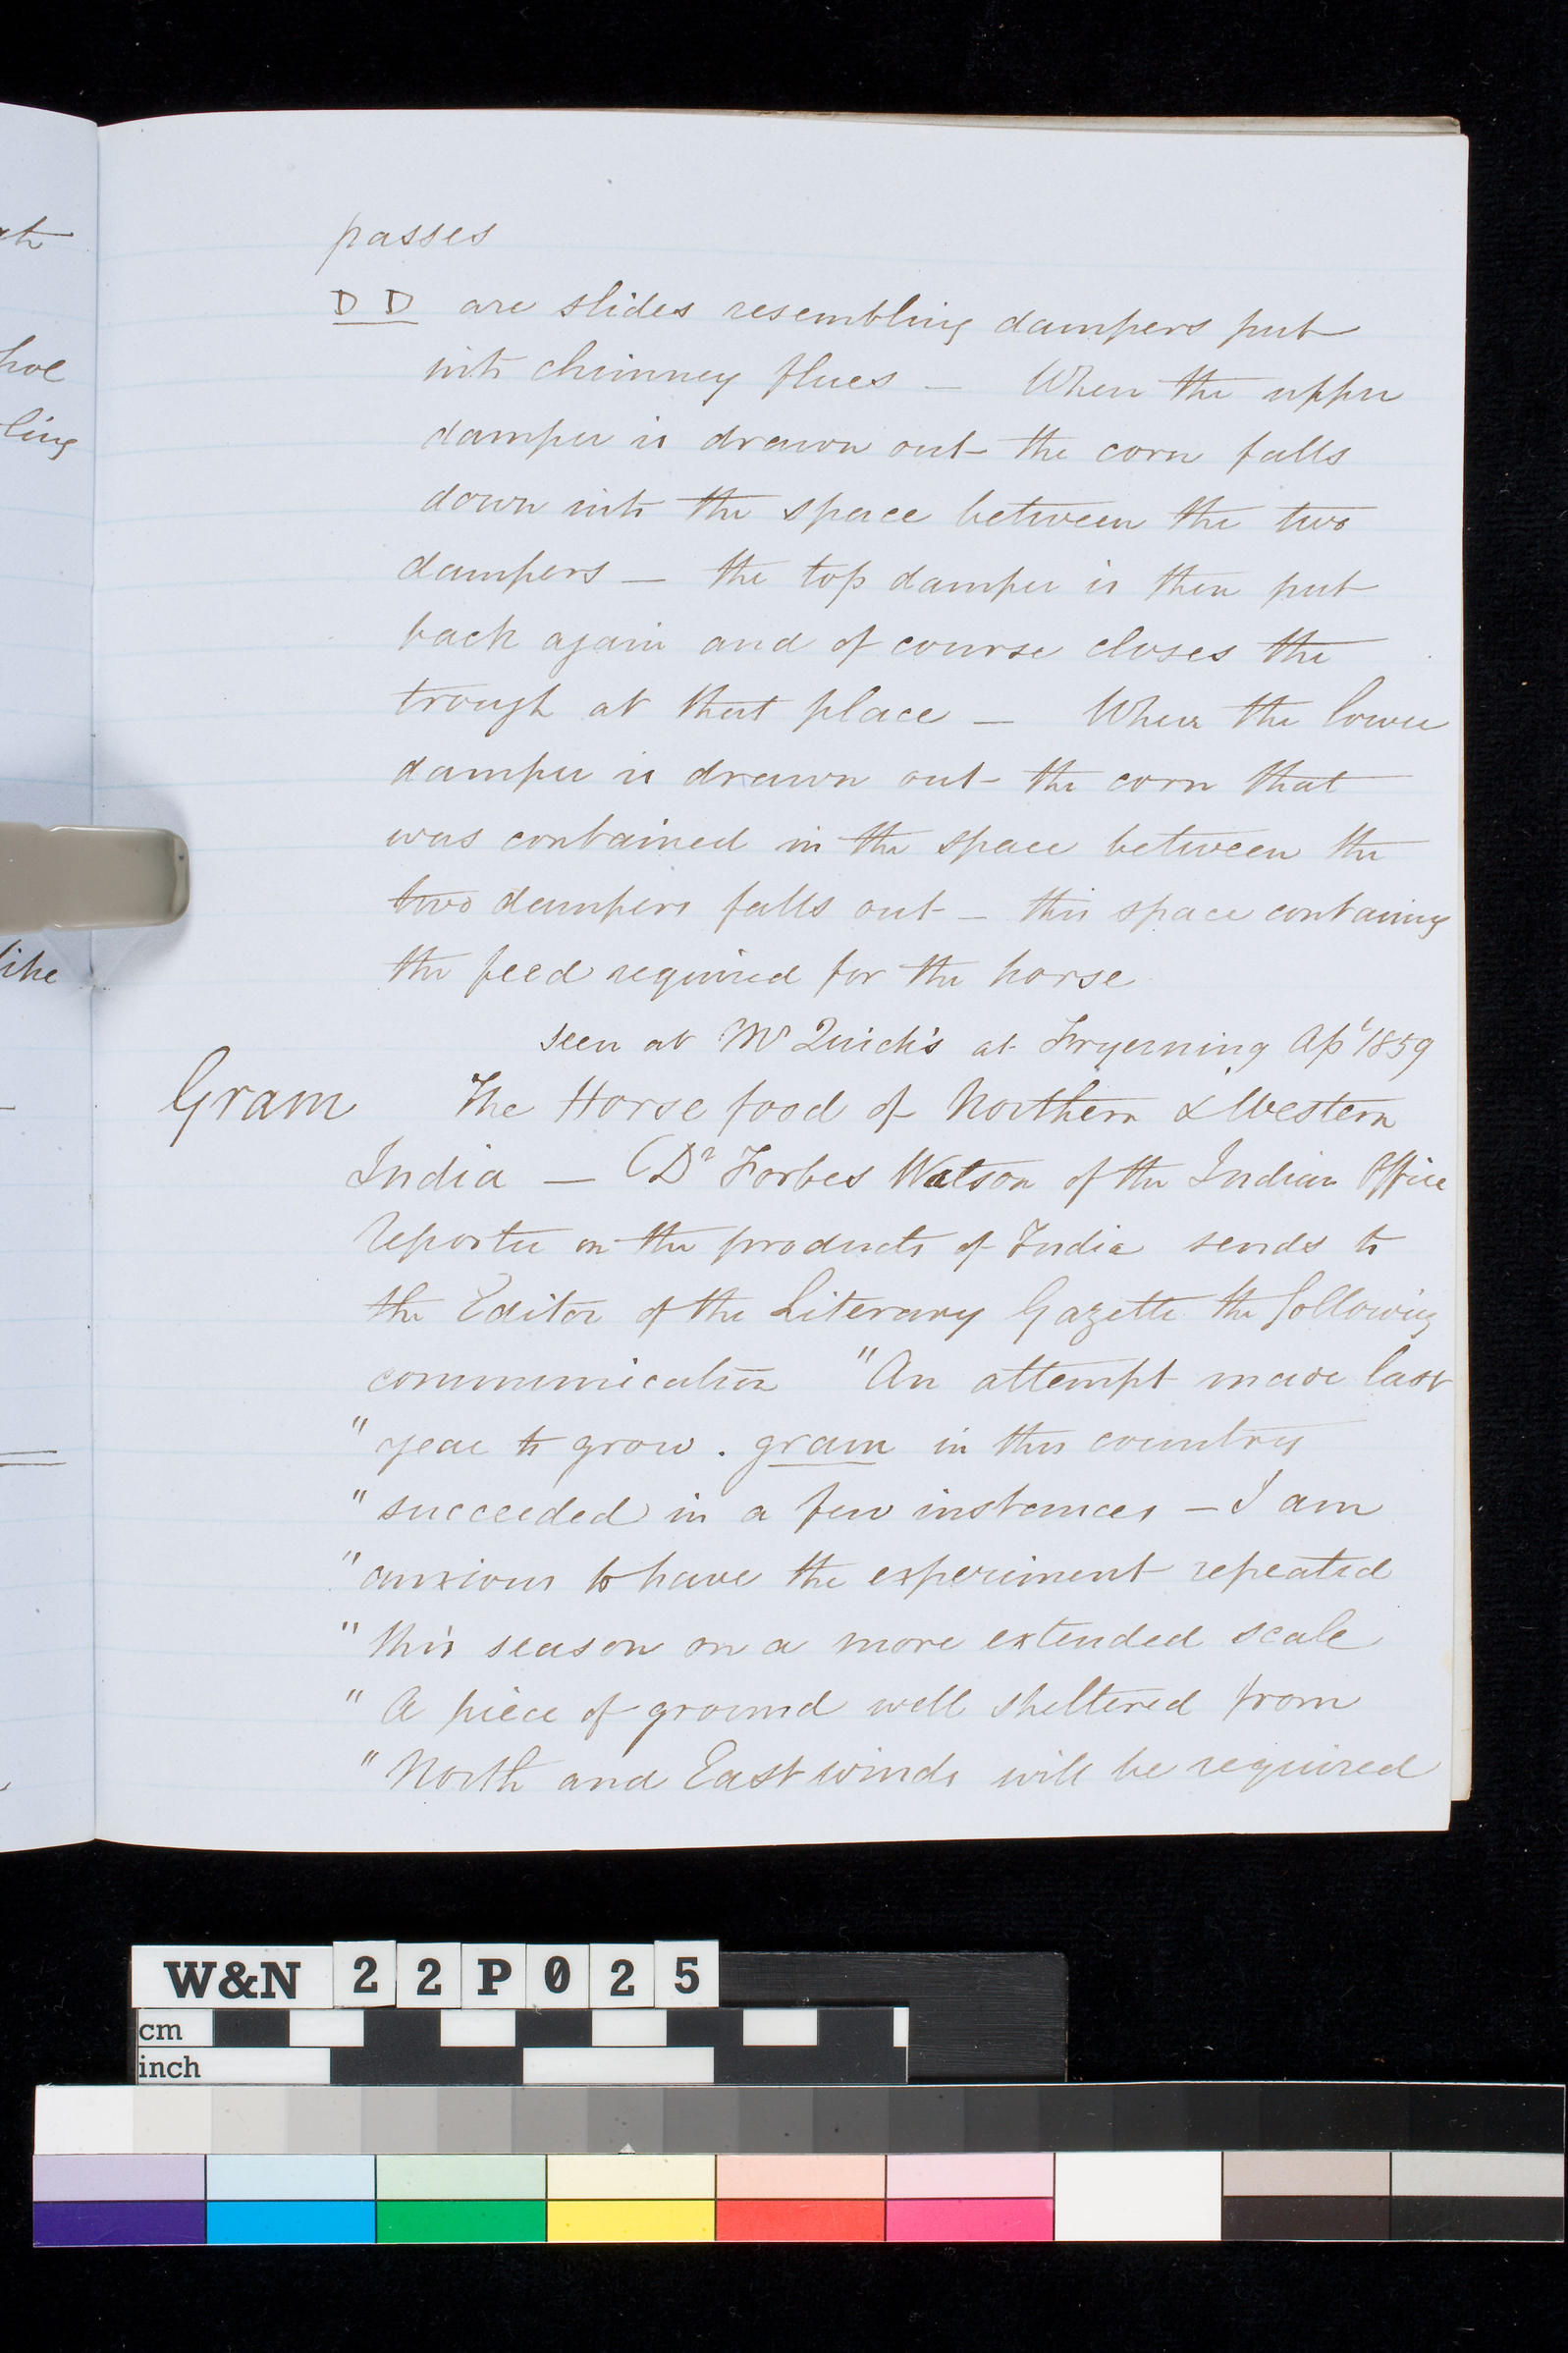 passes
D D are slides resembling dampers put
into chimney flues — When the upper
damper is drawn out the corn falls
down into the space between the two
dampers — the top damper is then put
back again and of course closes the
trough at that place — When the lower
damper is drawn out the corn that
was contained in the space between the
two dampers falls out — this space containing
the feed required for the horse
seen at Mr Quick's at Fryerning Apl 1859
Gram The Horse food of Northern & Western
India — (Dr Forbes Watson of the Indian Office
reporter on the products of India sends to
the Editor of the Literary Gazette the following
communication "An attempt made last
" year to grow . gram in this country
" succeeded in a few instances — I am
" anxious to have the experiment repeated
" this season on a more extended scale
" A piece of ground well sheltered from
" North and East winds will be required
ling
like
W&N 22P025
cm
inch